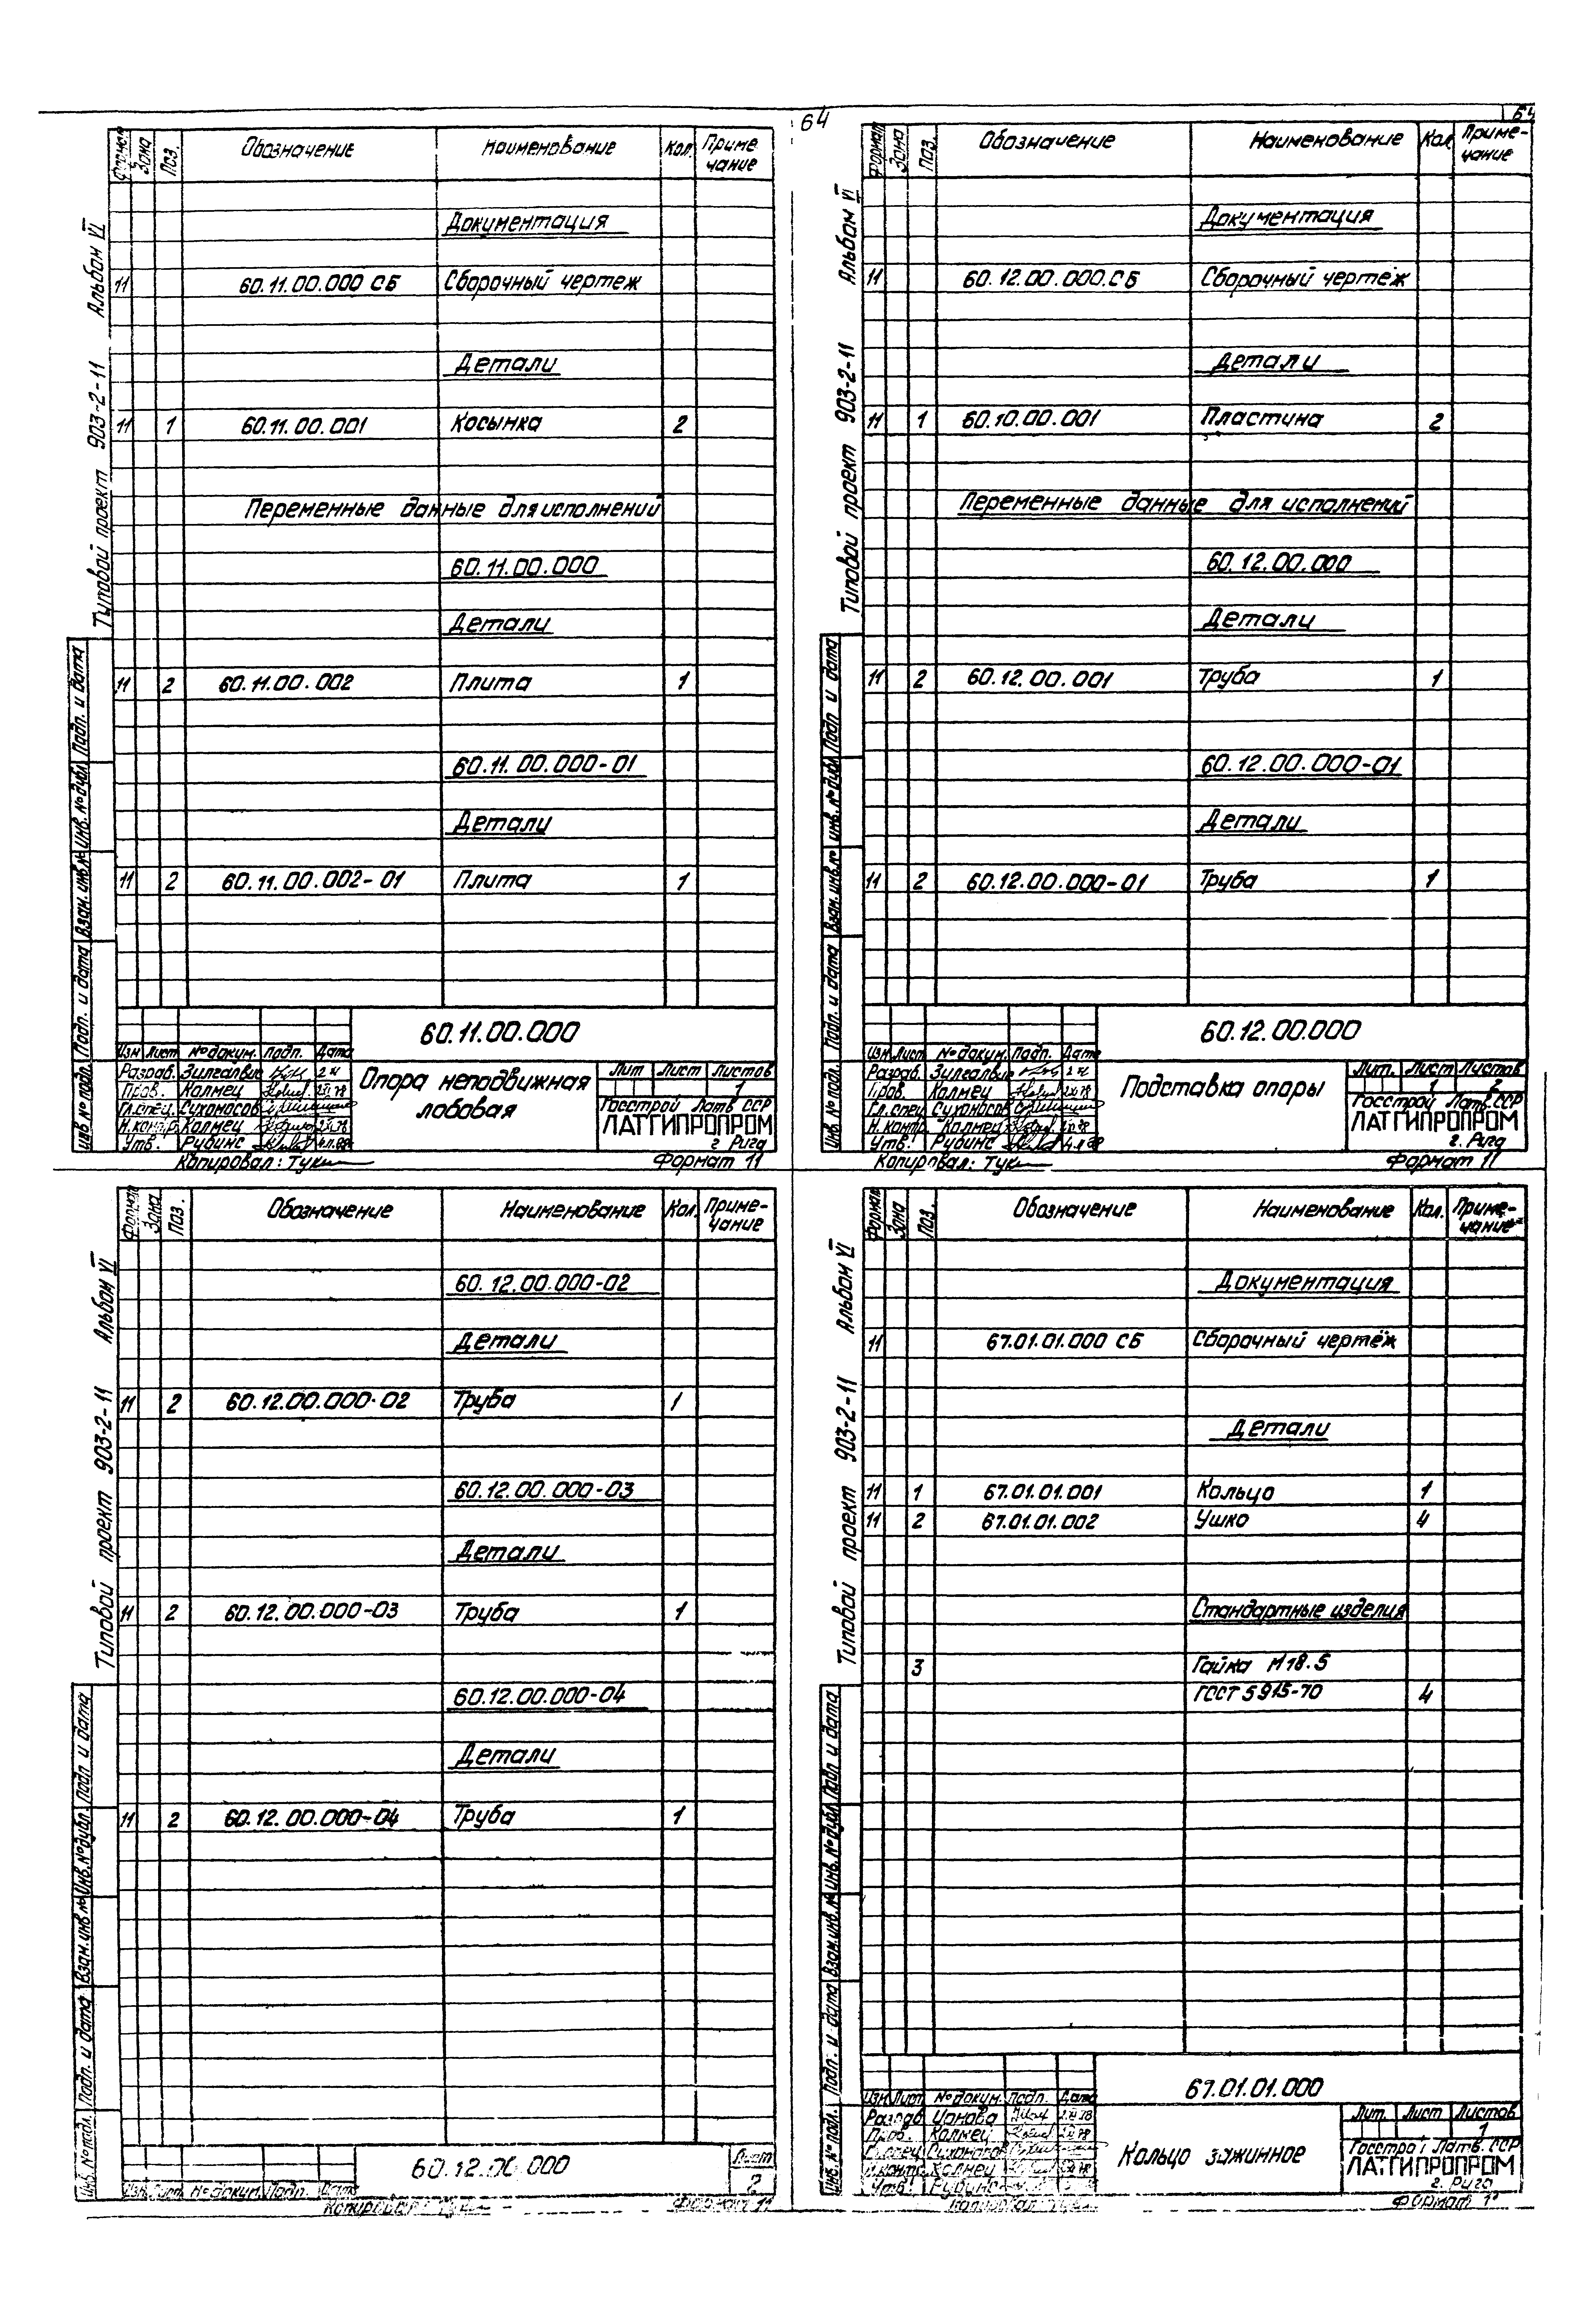 64
64
Формат Зона Поз. Обозначение Наименование Кол. Приме чание
Документация
11 60.11.00.000 СБ Сборочный чертеж
Детали
11 1 60.11.00.001 Косынка 2
Переменные данные для исполнений
60.11.00.000
Детали
11 2 60.11.00.002 Плита 1
60.11.00.000-01
Детали
11 2 60.11.00.002-01 Плита 1
Типовой проект 903-2-11 Альбом VI
Инв № подл. Подп. и дата Взам. инв № Инв. № дубл. Подп. и дата
60.11.00.000
Изм Лист № докум. Подп. Дата
Разраб. Зилгалвис
Пров. Калмец
Гл. спец. Сухоносов
Н. контр. Калмец
Утв. Рубинс
Опора неподвижная
лобовая
Лит Лист Листов
1
Госстрой Латв ССР
ЛАТГИПРОПРОМ
г Рига
Копировал: Формат 11
Формат Зона Поз. Обозначение Наименование Кол Приме- чание
Документация
11 60.12.00.000.СБ Сборочный чертёж
Детали
11 1 60.10.00.001 Пластина 2
Переменные данные для исполнений
60.12.00.000
Детали
11 2 60.12.00.001 Труба 1
60.12.00.000-01
Детали
11 2 60.12.00.000-01 Труба 1
Типовой проект 903-2-11 Альбом VI
Инв. № подл. Подп. и дата Взам. инв. № Инв. № дубл Подп и дата
60.12.00.000
Изм Лист № докум. Подп. Дата
Разраб. Зилгалвис
Пров. Калмец
Гл. спец Сухоносов
Н. контр. Калмец
Утв. Рубинс
Подставка опоры
Лит. Лист Листов
1 2
Госстрой Латв. ССР
ЛАТГИПРОПРОМ
г. Рига
Копировал: Формат 11
Формат Зона Поз. Обозначение Наименование Кол. Приме- чание
60.12.00.000-02
Детали
11 2 60.12.00.000-02 Труба 1
60.12.00.000-03
Детали
11 2 60.12.00.000-03 Труба 1
60.12.00.000-04
Детали
11 2 60.12.00.000-04 Труба 1
Типовой проект 903-2-11 Альбом VI
Инв. № подл. Подп. и дата Взам. инв № Инв. № дубл. Подп и дата
60.12.00.000
Лист
2
Изм Лист № докум. Подп. Дата
Копировал Формат 11
Формат Зона Поз. Обозначение Наименование Кол. Приме- чание
Документация
11 67.01.01.000 СБ Сборочный чертёж
Детали
11 1 67.01.01.001 Кольцо 1
11 2 67.01.01.002 Ушко 4
Стандартные изделия
3 Гайка М18.5
ГОСТ 5915-70 4
Типовой проект 903-2-11 Альбом VI
Инв. № подл. Подп. и дата Взам. инв. № Инв. № дубл Подп и дата
67.01.01.000
Изм Лист № докум. Подп. Дата
Разраб
Пров. Калмец
Гл. спец Сухоносов
Н. контр Калмец
Утв. Рубинс
Кольцо зажимное
Лит. Лист Листов
1
Госстрой Латв. ССР
ЛАТГИПРОПРОМ
г. Рига
Копировал Формат 11